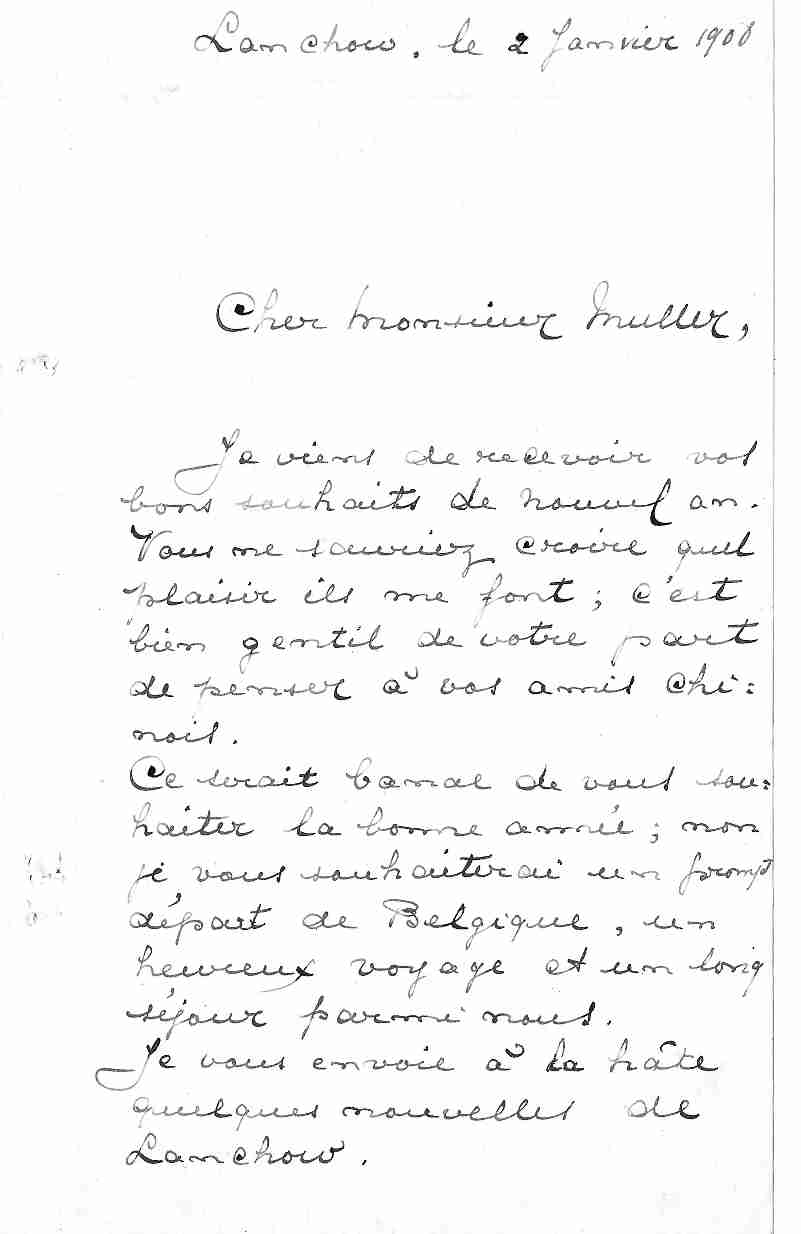 Lanchow. le 2 Janvier 1908
Cher Monsieur Muller,
Je viens de recevoir vos
bons souhaits de nouvel an.
Vous me sauriez croire quel
plaisir ils me font ; c'est
bien gentil de votre part
de penser à vos amis Chi=
nois.
Ce serait banal de vous sou=
haiter la bonne année ; non
je vous souhaiterai un prompt
départ de Belgique, un
heureux voyage et un long
séjour parmi nous.
Je vous envoie à la hâte
quelques nouvelles de
Lanchow.